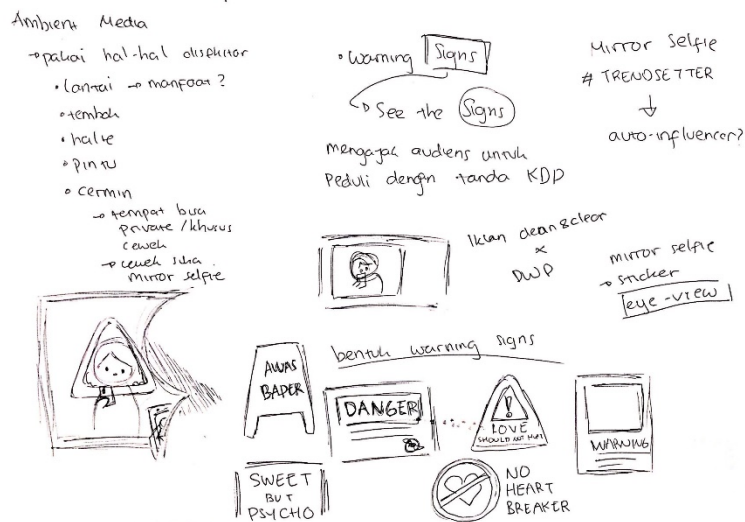 Ambient Media
→ pakai hal-hal disekitar
• lantai → manfaat?
• tembok
• halte
• pintu
• cermin
→ tempat bisa
private / khusus
cewek
→ cewek suka
mirror selfie
• Warning Signs
↳ See the Signs
mengajak audiens untuk
peduli dengan tanda KDP
Mirror Selfie
# TRENDSETTER
↓
auto-influencer?
Iklan clean & clear
×
DWP
mirror selfie
→ sticker
eye-view
bentuk warning signs
AWAS
BAPER
DANGER
!
LOVE
SHOULD NOT HURT
WARNING
SWEET
BUT
PSYCHO
NO
HEART
BREAKER